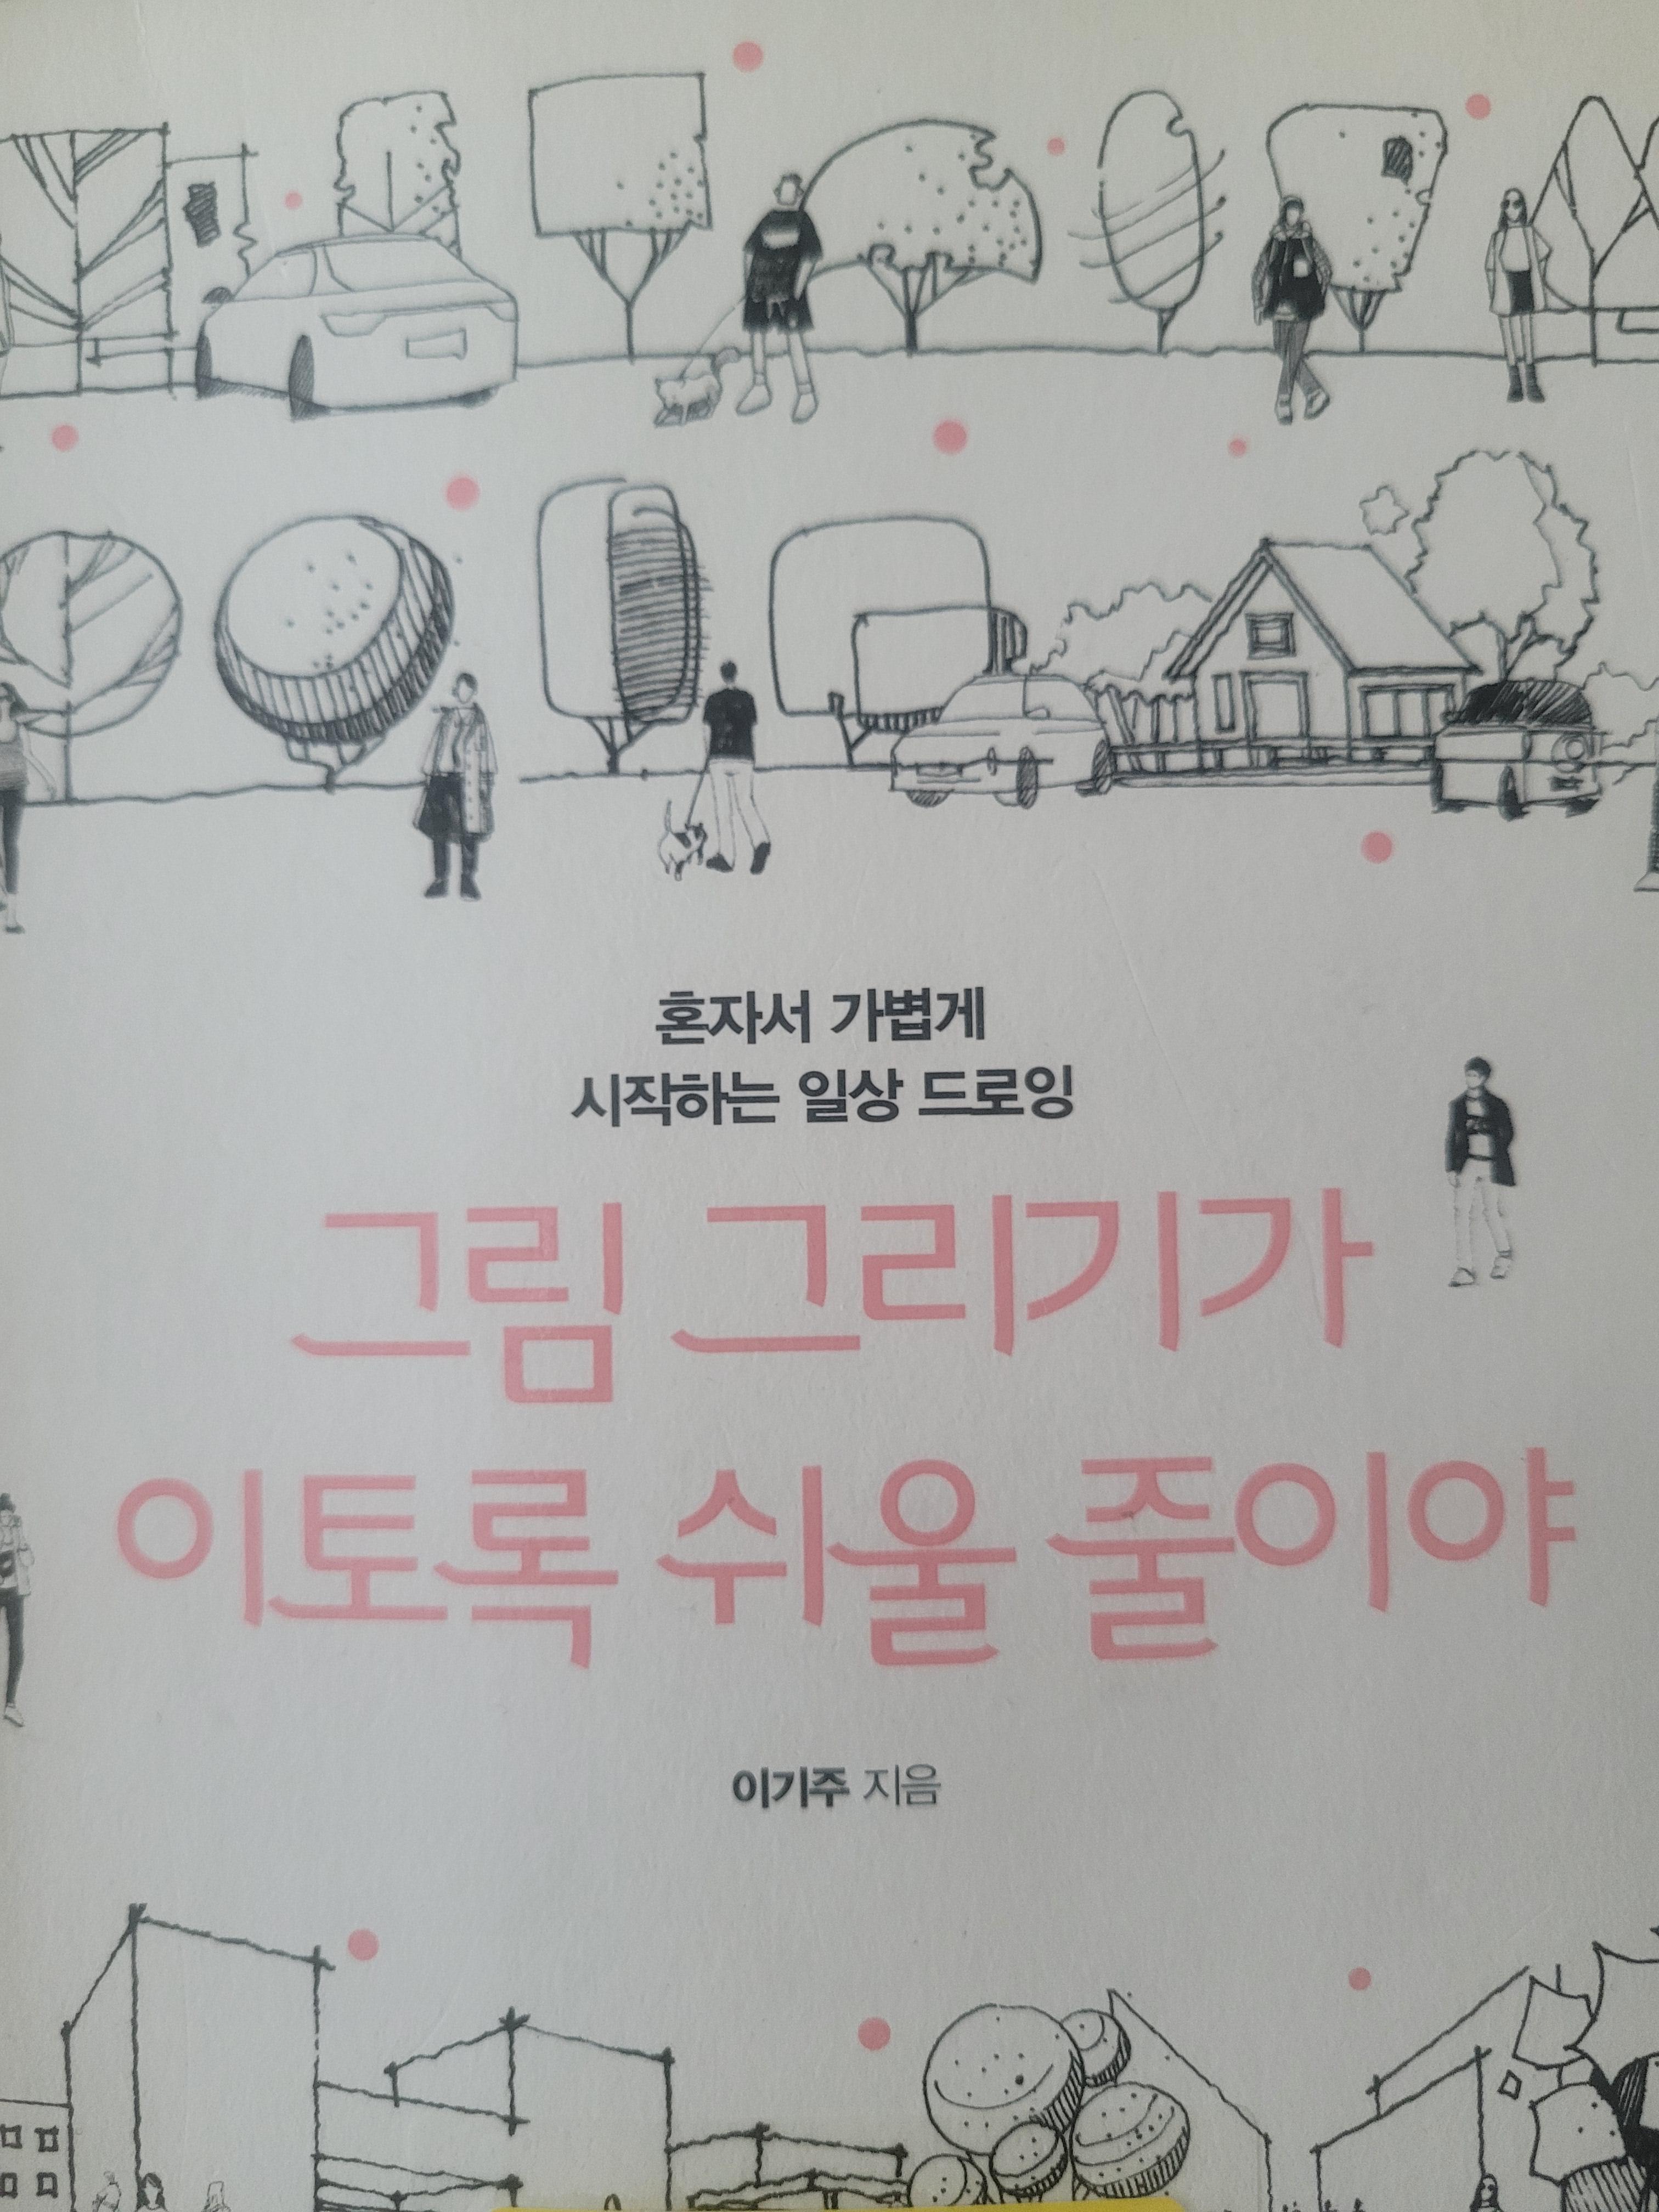 혼자서 가볍게
시작하는 일상 드로잉
그림 그리기가
이토록 쉬울 줄이야
이기주 지음